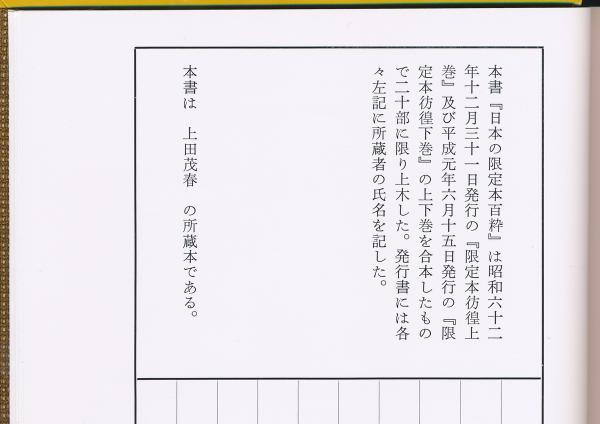 本書『日本の限定本百粋』は昭和六十二
年十二月三十一日発行の『限定本彷徨上
巻』及び平成元年六月十五日発行の『限
定本彷徨下巻』の上下巻を合本したもの
で二十部に限り上木した。発行書には各
々左記に所蔵者の氏名を記した。
本書は　上田茂春　の所蔵本である。